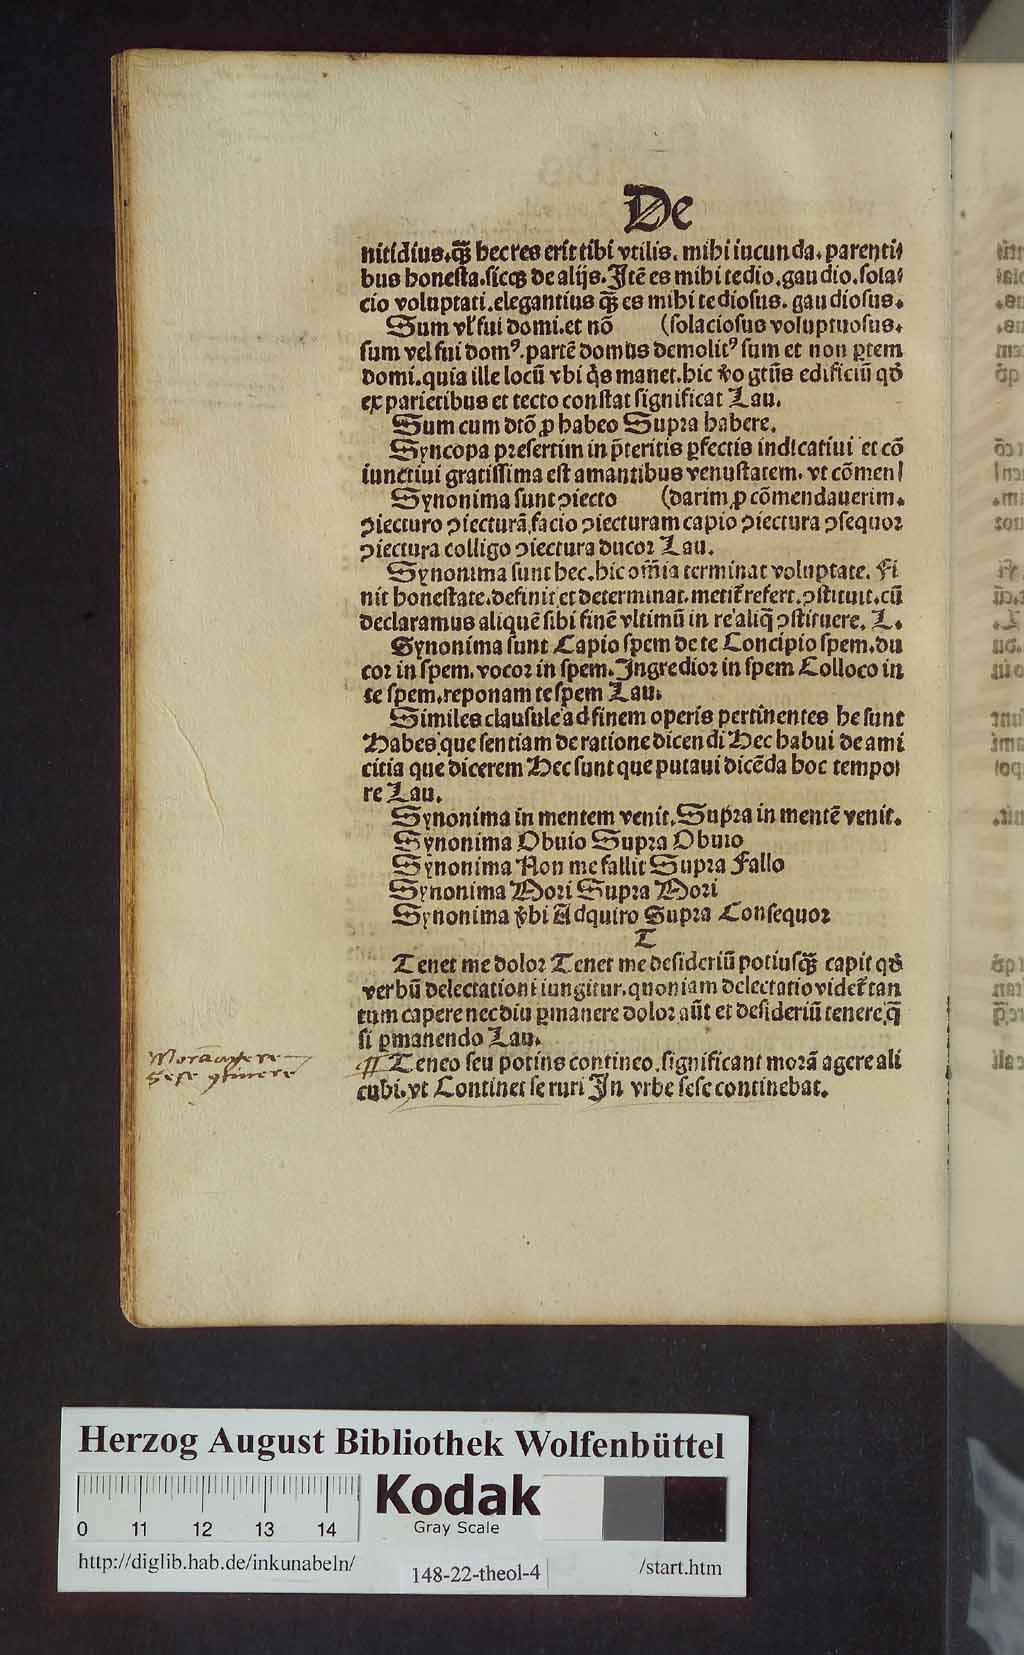 De
nitidius.qꝫ̃ hec res erit tibi vtilis. mihi iucunda. parenti⸗
bus honesta.sicqꝫ de alijs. Itē es mihi tedio.gaudio.sola⸗
cio voluptati.elegantius qꝫ̃ es mihi tediosus. gaudiosus.
Sum vl̕ fui domi.et nō (solaciosus voluptuosus.
sum vel fui domꝰ. partē domus demolitꝰ sum et non ꝑtem
domi.quia ille locū vbi q̇s manet.hic v̕o gtūs edificiū qd̕
ex parietibus et tecto constat significat Lau.
Sum cum dtō ꝓ habeo Supra habere.
Syncopa presertim in p̄teritis ꝑfectis indicatiui et cō
iunctiui gratissima est amantibus venustatem. vt cōmen⸗
Synonima sunt ꝯiecto (darim ꝓ cōmendauerim.
ꝯiecturo ꝯiecturā facio ꝯiecturam capio ꝯiectura ꝯsequor
ꝯiectura colligo ꝯiectura ducor Lau.
Synonima sunt hec.hic om̄ia terminat voluptate. Fi
nit honestate.definit et determinat. metit̕ refert.ꝯstituit.cū
declaramus aliquē sibi finē vltimū in re aliq̄ ꝯstituere. L.
Synonima sunt Capio spem de te Concipio spem.du
cor in spem. vocor in spem. Ingredior in spem Colloco in
te spem.reponam te spem Lau.
Similes clausule ad finem operis pertinentes he sunt
Habes que sentiam de ratione dicendi Hec habui de ami
citia que dicerem Hec sunt que putaui dicēda hoc tempo⸗
re Lau.
Synonima in mentem venit. Supra in mentē venit.
Synonima Obuio Supra Obuio
Synonima Non me fallit Supra Fallo
Synonima Mori Supra Mori
Synonima v̕bi Adquiro Supra Consequor
T
Tenet me dolor Tenet me desideriū potiusqꝫ̃ capit qd̕
verbū delectationi iungitur.quoniam delectatio videt̕ tan
tum capere nec diu ꝑmanere dolor aūt et desideriū tenere q̄
si ꝑmanendo Lau.
Morā agere
Sese ꝯtinere
¶ Teneo seu potius contineo.significant morā agere ali
cubi.vt Continet se ruri In vrbe sese continebat.
Herzog August Bibliothek Wolfenbüttel
0 11 12 13 14
Kodak
Gray Scale
http://diglib.hab.de/inkunabeln/
148-22-theol-4
/start.htm